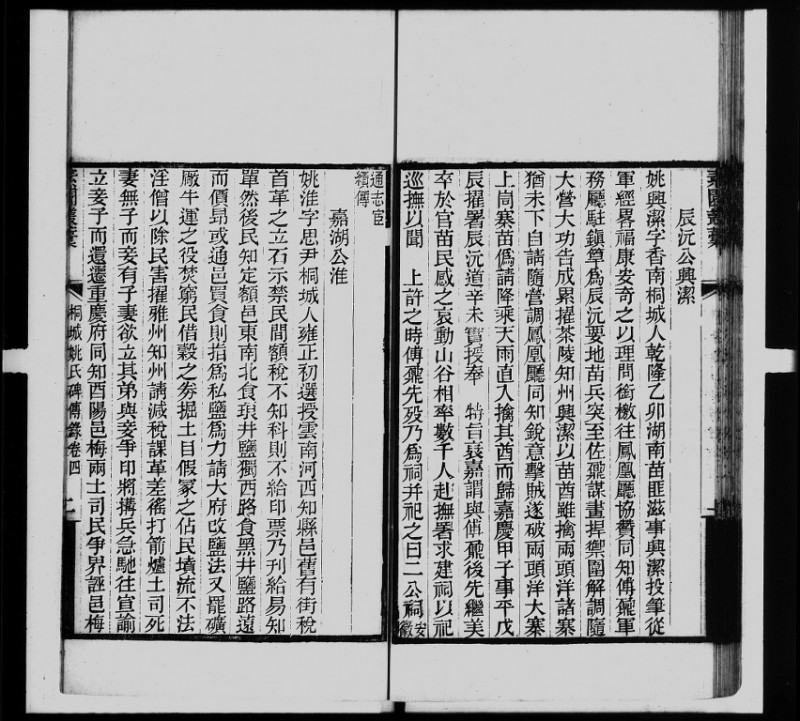 辰沅公興潔
姚興潔字香南桐城人乾隆乙卯湖南苗匪滋事興潔投筆從
軍經畧福康安奇之以理問銜檄往鳳凰廳協贊同知傅鼐軍
務廳駐鎮筸為辰沅要地苗兵突至佐鼐謀畫捍禦圍解調隨
大營大功告成累擢茶陵知州興潔以苗酋雖擒兩頭洋諸寨
猶未下自請隨營調鳳凰廳同知銳意擊賊遂破兩頭洋大寨
上崗寨苗偽請降乘天雨直入擒其酋而歸嘉慶甲子事平戊
辰擢署辰沅道辛未實授奉　特旨裒嘉謂與傅鼐後先繼美
卒於官苗民感之哀動山谷相率數千人赴撫署求建祠以祀
巡撫以聞　上許之時傅鼐先歿乃為祠并祀之曰二公祠安徽
通志宦績傳
嘉湖公淮
姚淮字思尹桐城人雍正初選授雲南河西知縣邑舊有街稅
首革之立石示禁民間額稅不知科則不給印票乃刊給易知
單然後民知定額邑東南北食琅井鹽獨西路食黑井鹽路遠
而價昂或通邑買食則指為私鹽為力請大府改鹽法又罷礦
厰牛運之役焚窮民借穀之券掘土目假冢之佔民墳流不法
淫僧以除民害擢雅州知州請減稅課革差徭打箭爐土司死
妻無子而妾有子妻欲立其弟與妾爭印將搆兵急馳往宣諭
立妾子而還遷重慶府同知酉陽邑梅兩土司民爭界誣邑梅
桐城姚氏碑傳錄卷四
二